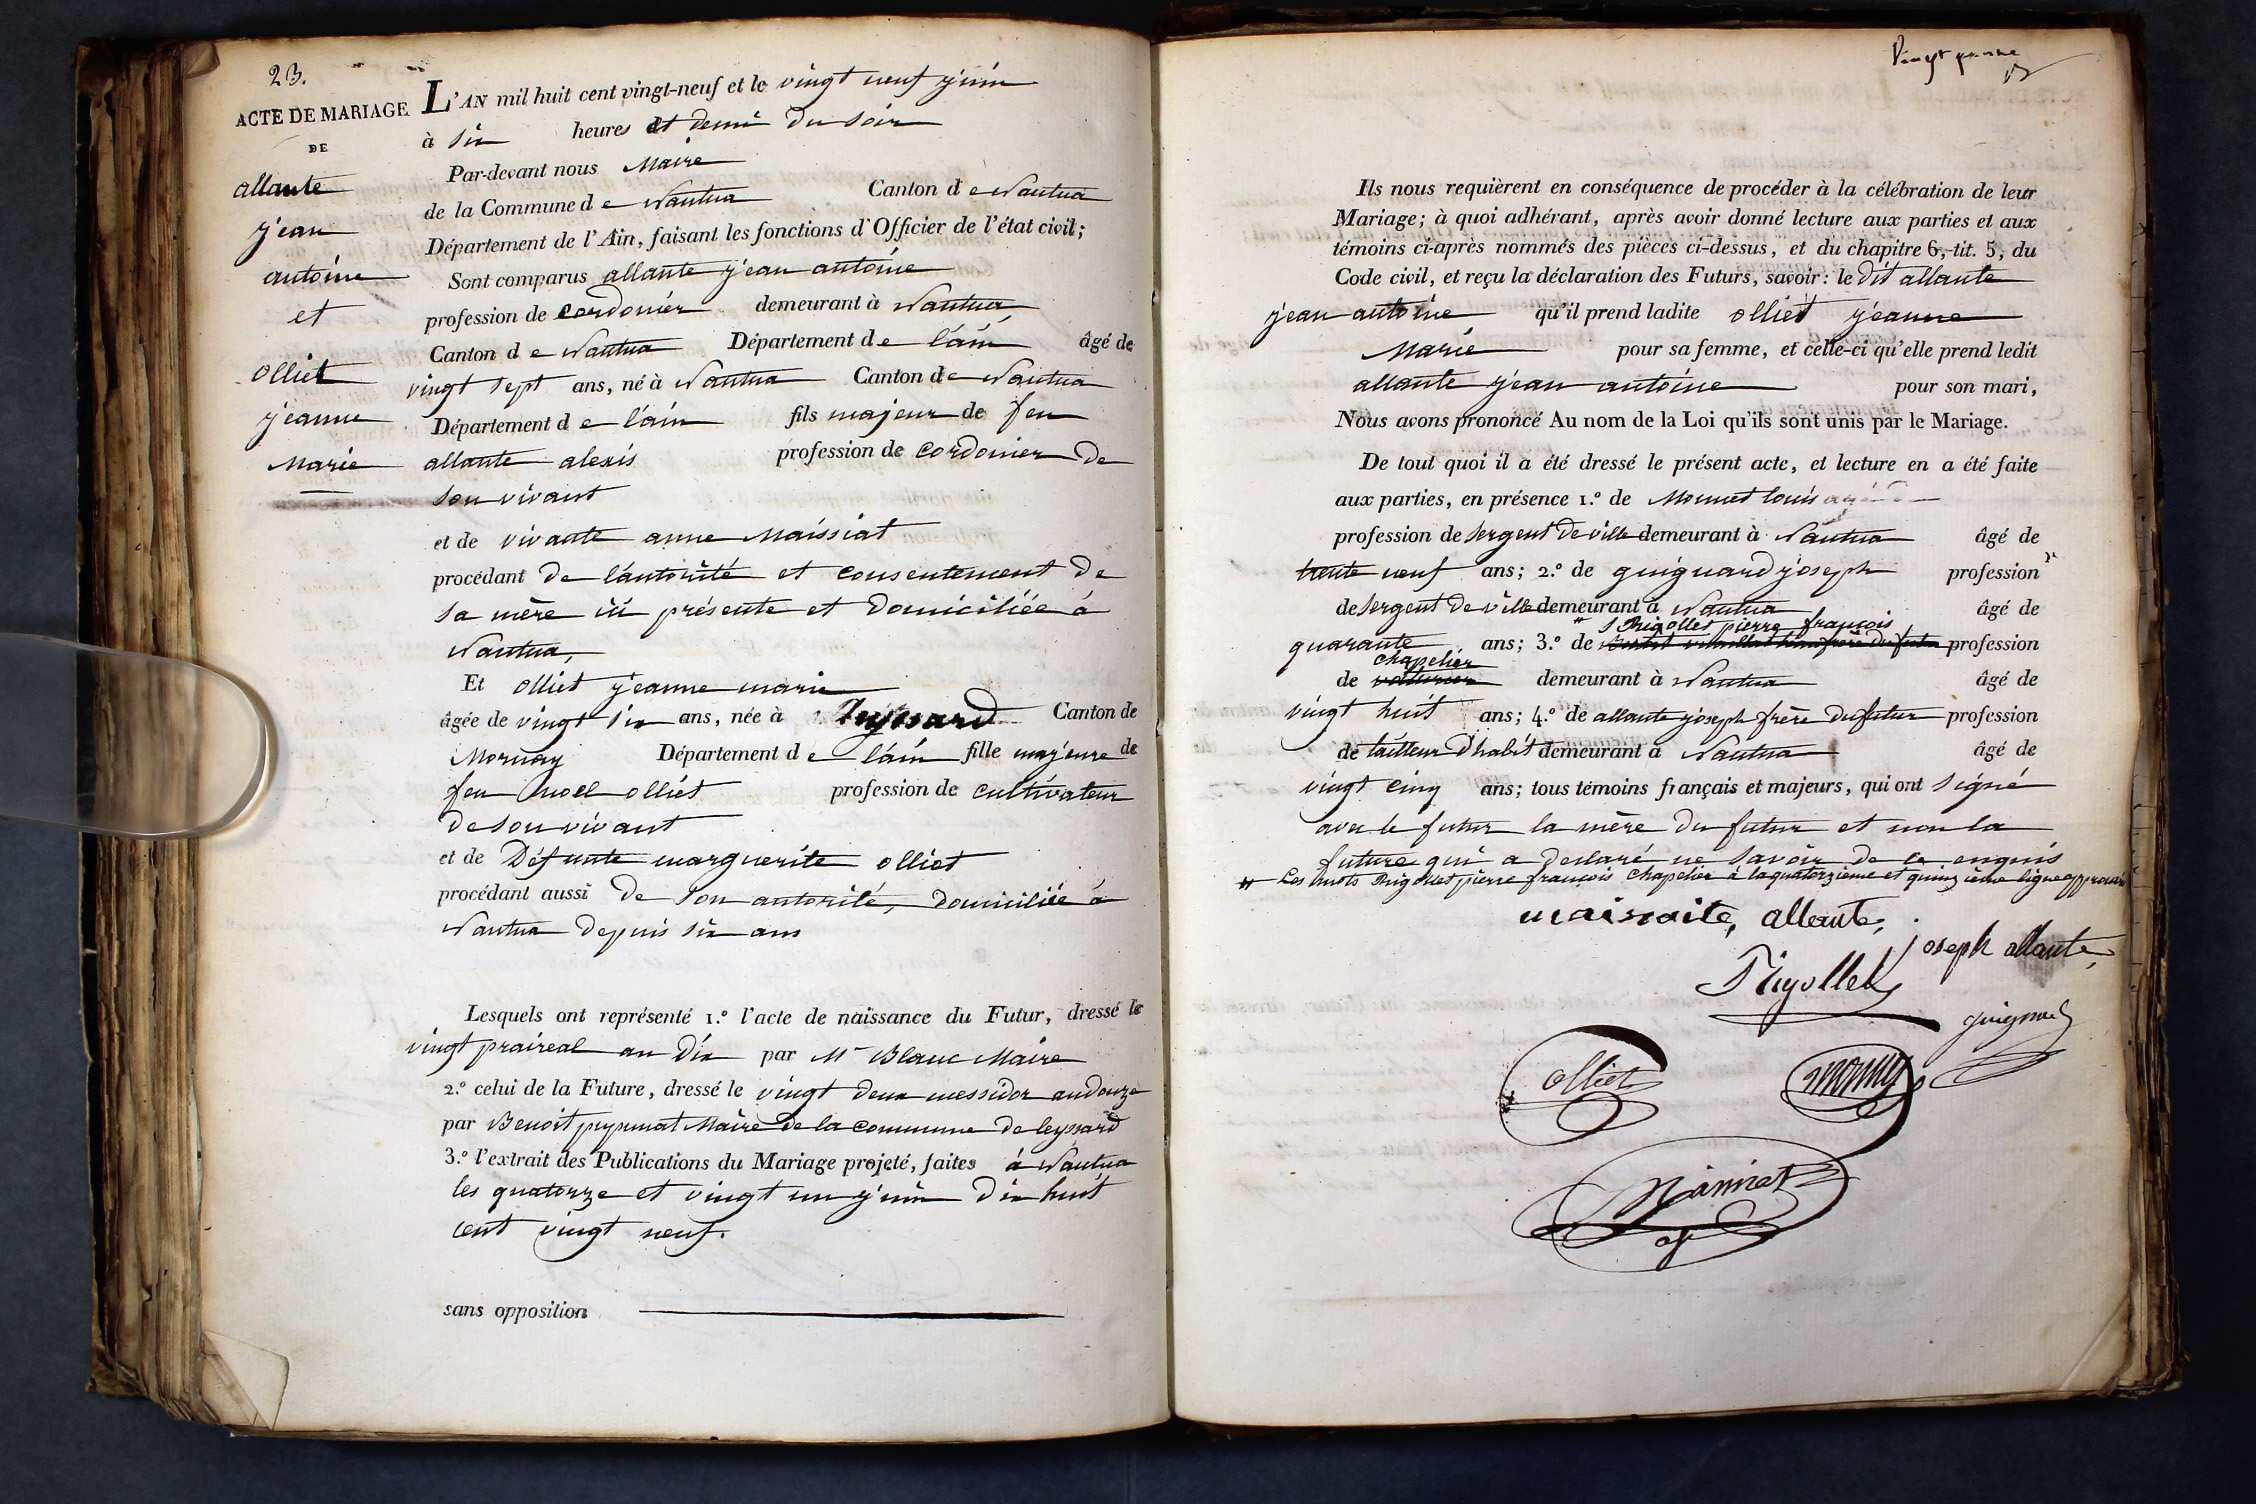 23.
ACTE DE MARIAGE
DE
allante
jean
antoine
et
olliet
jeanne
Marie
L'AN mil huit cent vingt-neuf et le vingt neuf juin
à six heures et demi du soir
Par-devant nous Maire
de la Commune de Nantua Canton de Nantua
Département de l'Ain, faisant les fonctions d'Officier de l'état civil;
Sont comparus allante jean antoine
profession de cordonier demeurant à Nantua,
Canton de Nantua Département de láin âgé de
vingt sept ans, né à Nantua Canton de Nantua
Département de l'ain fils majeur de feu
allante alexis profession de cordonier de
son vivant
et de vivante anne Maissiat
procédant de l'autorité et consentement de
sa mère ici présente et domiciliée à
Nantua,
Et olliet jeanne marie
âgée de vingt six ans, née à Leyssard Canton de
Mornay Département de láin fille majeure de
feu noel olliet profession de cultivateur
de son vivant
et de Défunte marguerite olliet
procédant aussi de son autorité, domiciliée à
Nantua depuis six ans
Lesquels ont représenté 1.º l'acte de naissance du Futur, dressé le
vingt praireal an dix par Mr Blanc Maire
2.º celui de la Future, dressé le vingt deux messidor an douze
par Benoit Maire de la commune de leyssard
3.º l'extrait des Publications du Mariage projeté, faites à Nantua
les quatorze et vingt un juin dix huit
cent vingt neuf.
sans opposition
Vingt
Ils nous requièrent en conséquence de procéder à la célébration de leur
Mariage; à quoi adhérant, après avoir donné lecture aux parties et aux
témoins ci-après nommés des pièces ci-dessus, et du chapitre 6, tit. 5, du
Code civil, et reçu la déclaration des Futurs, savoir: le dit allante
jean antoine qu'il prend ladite olliet jeanne
Marie pour sa femme, et celle-ci qu'elle prend ledit
allante jean antoine pour son mari,
Nous avons prononcé Au nom de la Loi qu'ils sont unis par le Mariage.
De tout quoi il a été dressé le présent acte, et lecture en a été faite
aux parties, en présence 1.º de Monnet louis
profession de sergent de ville demeurant à Nantua âgé de
trente neuf ans; 2.º de guignard joseph profession
de sergent de ville demeurant à Nantua âgé de
Rigollet pierre françois
quarante ans; 3.º de profession
chapelier
de voiturier demeurant à Nantua âgé de
vingt huit ans; 4.º de allante joseph frère du futur profession
de tailleur d'habit demeurant à Nantua âgé de
vingt cinq ans; tous témoins français et majeurs, qui ont signé
avec le futur la mère du futur et non la
future qui a declaré ne savoir de ce enquis
Les mots Rigollet pierre françois chapelier à la quatorzieme et quinzième ligne approuvés
maissaite, allante,
joseph allante,
Rigollet
guignard
olliet